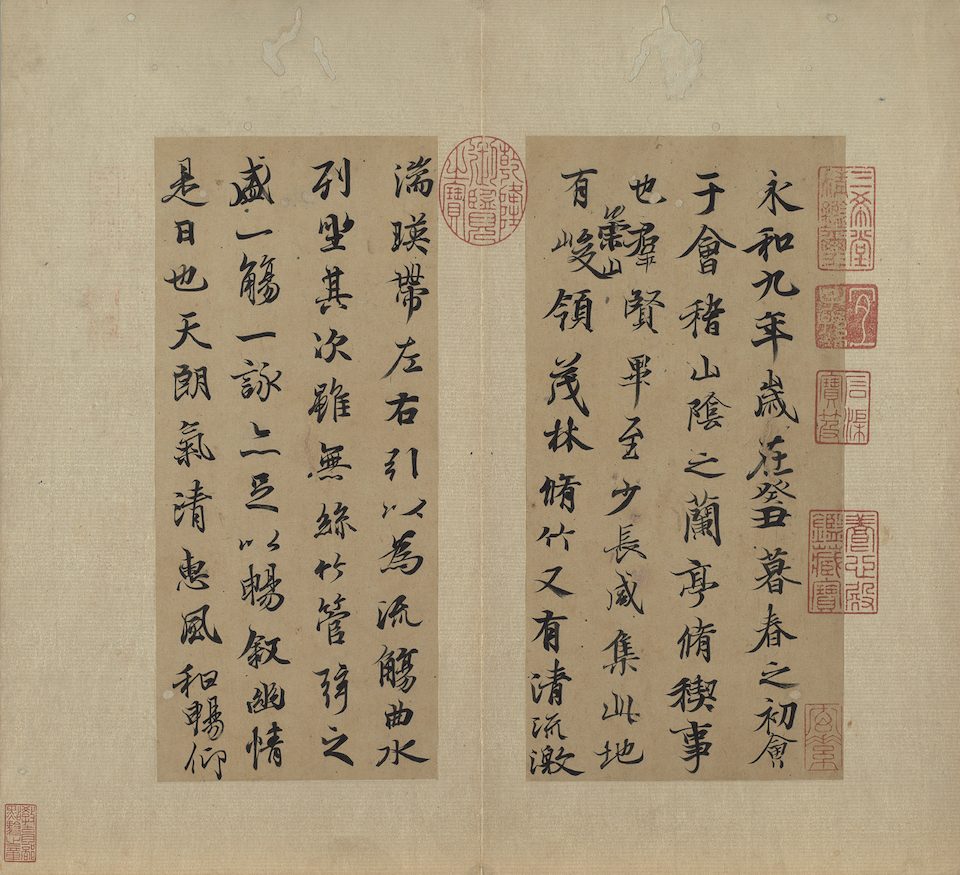 三希堂精鑑璽
石渠寶笈
養心殿鑑藏寶
永和九年歲在癸丑暮春之初會
于會稽山陰之蘭亭脩稧事
也羣賢畢至少長咸集此地
有崇山峻領茂林脩竹又有清流激
乾隆御覽之寶
湍暎帶左右引以為流觴曲水
列坐其次雖無絲竹管弦之
盛一觴一詠亦足以暢敘幽情
是日也天朗氣清惠風和暢仰